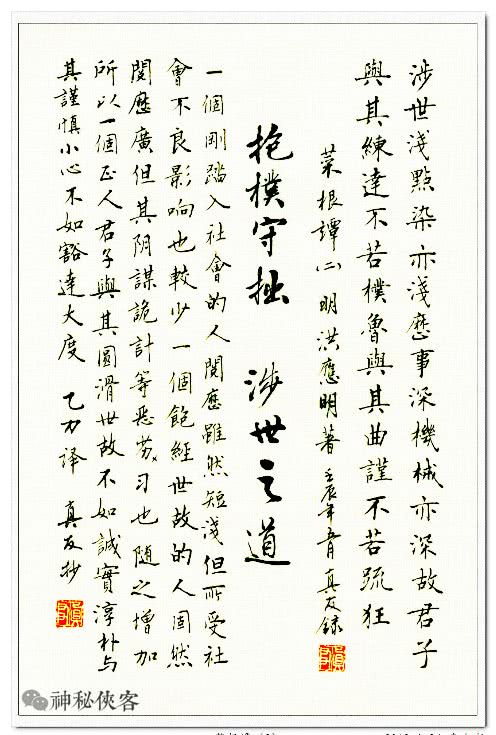 涉世淺點染亦淺歷事深機械亦深故君子
與其練達不若樸魯與其曲謹不若疏狂
菜根譚(二) 明 洪應明著 壬辰年 真友錄
抱樸守拙 涉世之道
一個剛踏入社會的人閱歷雖然短淺但所受社
會不良影响也較少一個飽經世故的人固然
閱歷廣但其阴謀詭計等恶劣习也随之增加
所以一個正人君子與其圓滑世故不如誠實淳朴与
其謹慎小心不如豁達大度 乙力译 真友抄
神秘侠客